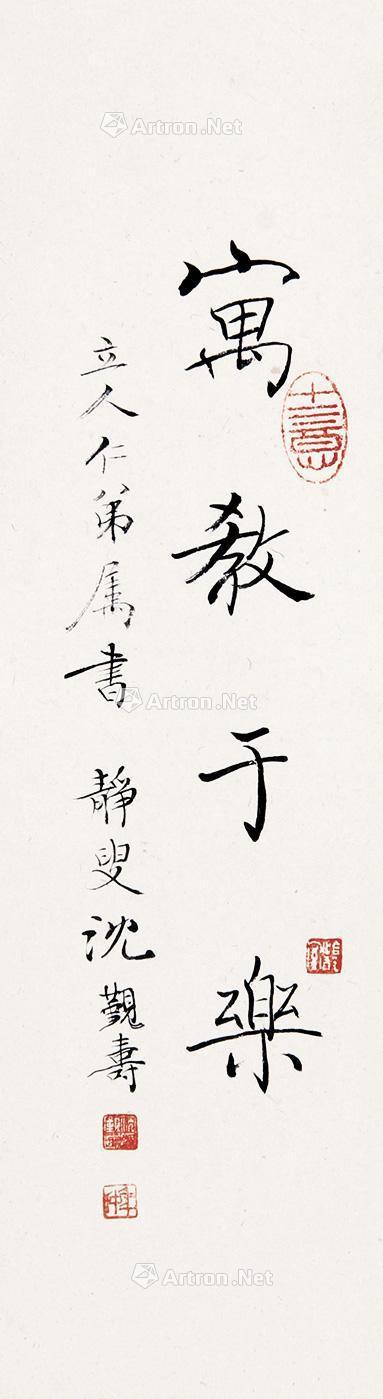 寓教于樂
立人仁弟属書 靜叟沈觐壽
Artron.Net
Artron.Net
Artron.Net